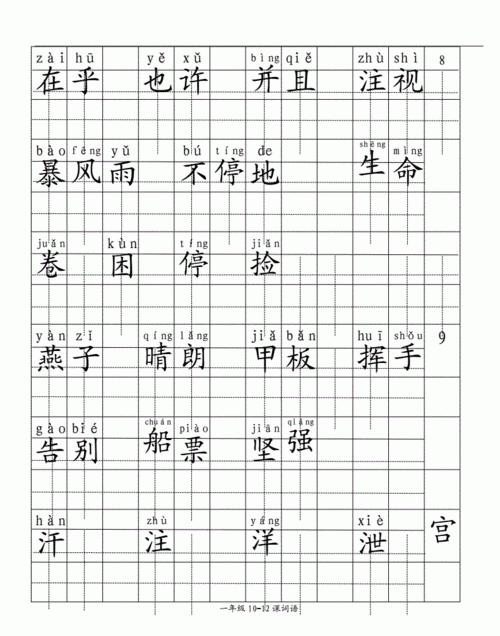 zài hū yě xǔ bìng qiě zhù shì 8
在乎 也许 并且 注视
bào fēng yǔ bú tíng de shēng mìng
暴风雨 不停地 生命
juǎn kùn tíng jiǎn
卷 困 停 捡
yàn zǐ qíng lǎng jiǎ bǎn huī shǒu 9
燕子 晴朗 甲板 挥手
gào bié chuán piào jiān qiáng
告别 船票 坚强
hàn zhù yáng xiè
汗 注 洋 泄 宫
一年级10-12课词语